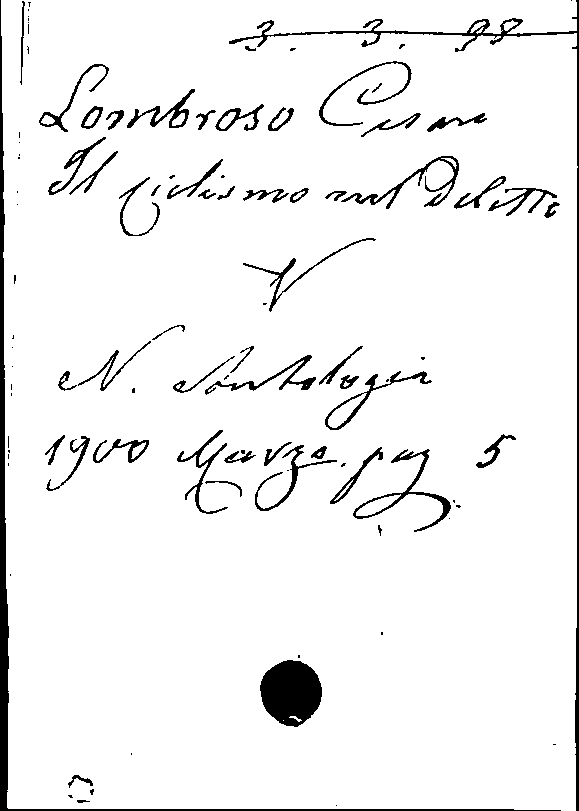 3. 3. 98
Lombroso Cesare
Il ciclismo nel Delitto
V
N. Antologia
1900 Marzo. pag 5